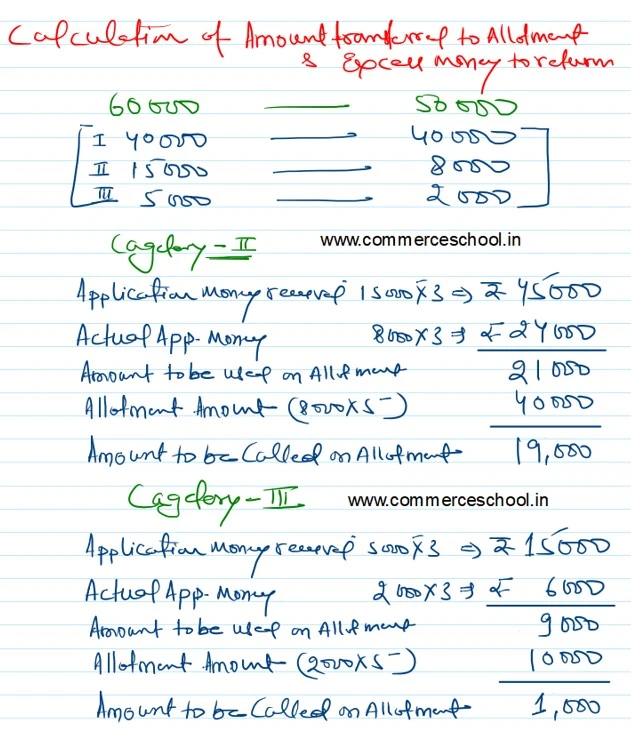 Calculation of Amount transferred to Allotment
& Excess Money to return
60000 — 50000
I 40000 — 40000
II 15000 — 8000
III 5000 — 2000
Cagetory - II www.commerceschool.in
Application Money received 15000 X 3 => ₹ 45000
Actual App. Money 8000 X 3 => ₹ 24000
Amount to be used on Allotment 21000
Allotment Amount (8000 X 5) 40000
Amount to be Called on Allotment 19,000
Cagetory - III www.commerceschool.in
Application Money received 5000 X 3 => ₹ 15000
Actual App. Money 2000 X 3 => ₹ 6000
Amount to be used on Allotment 9000
Allotment Amount (2000 X 5) 10000
Amount to be Called on Allotment 1,000